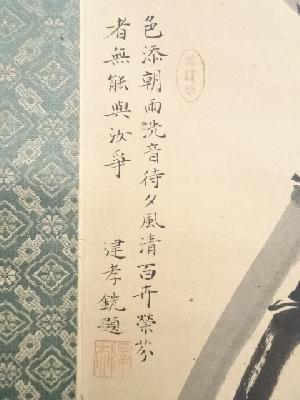 色添朝雨洗音待夕風清百卉榮芬
者無能與汝爭
建孝鋭題